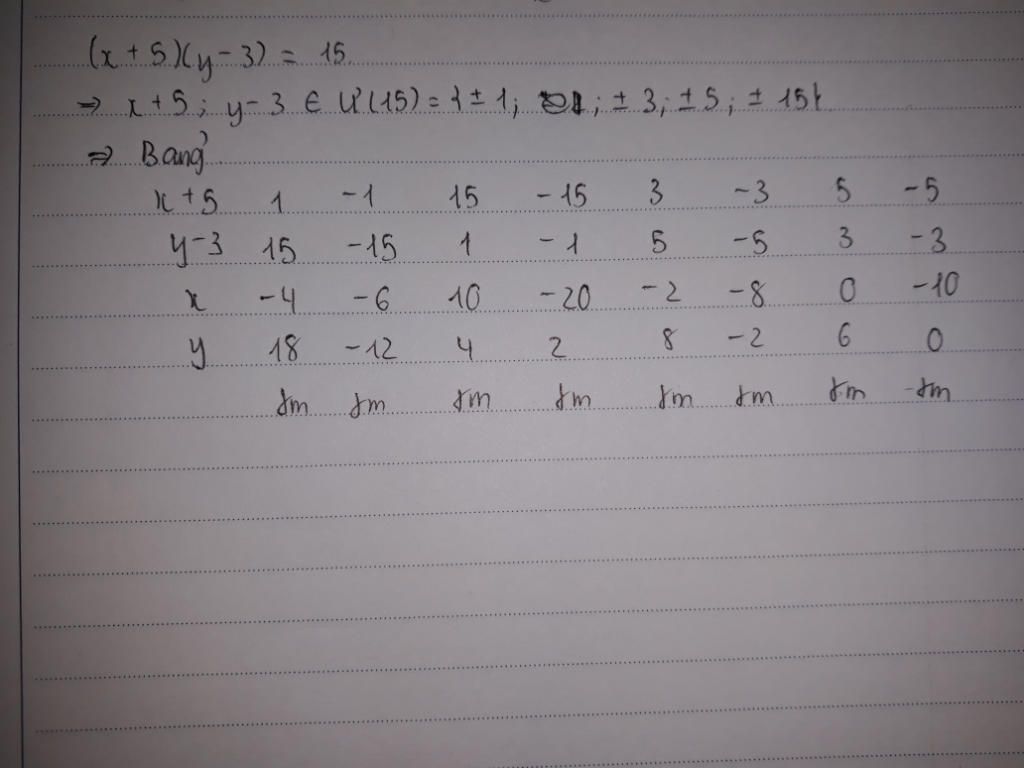 (x + 5)(y - 3) = 15
=> x + 5 ; y - 3 ∈ Ư(15) = {± 1; ; ± 3; ± 5; ± 15}
=> Bảng
x + 5 1 -1 15 -15 3 -3 5 -5
y - 3 15 -15 1 -1 5 -5 3 -3
x -4 -6 10 -20 -2 -8 0 -10
y 18 -12 4 2 8 -2 6 0
tm tm tm tm tm tm tm tm